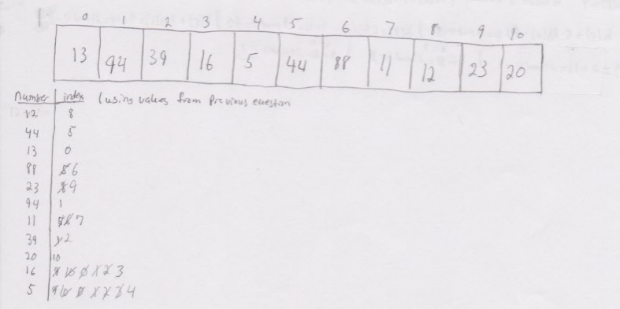 0 1 2 3 4 5 6 7 8 9 10
13 94 39 16 5 44 88 11 12 23 20
Number index (using values from Previous question
12 8
44 5
13 0
88 6
23 9
94 1
11 7
39 2
20 10
16 3
5 4